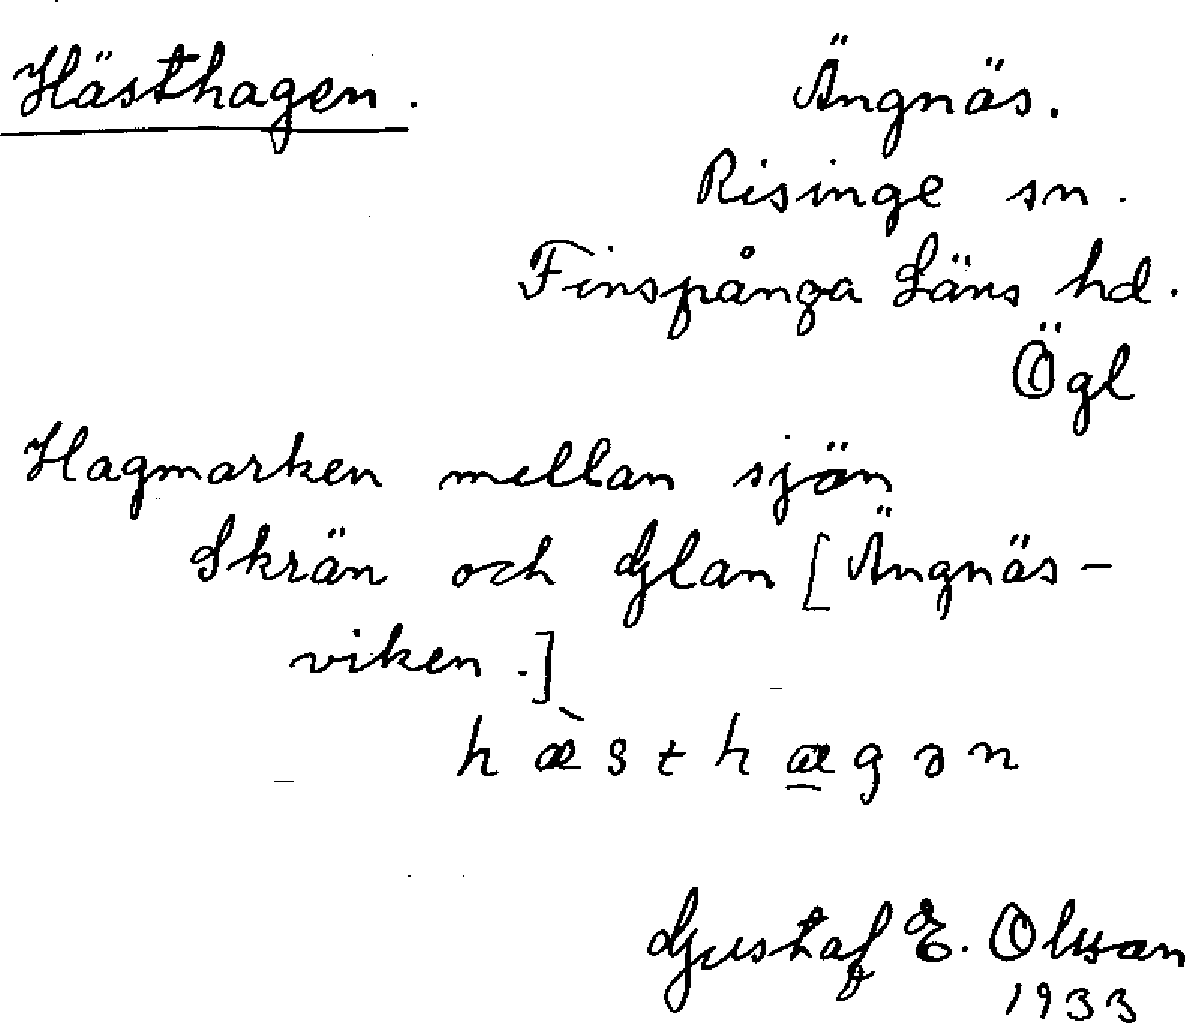 Hästhagen.
Ängnäs.
Risinge sn.
Finspånga Läns hd.
Ögl
Hagmarken mellan sjön
Skrän och Glan [Ängnäs-
viken.]
hæ̀sthα̠gən
Gustaf E. Olsson
1933